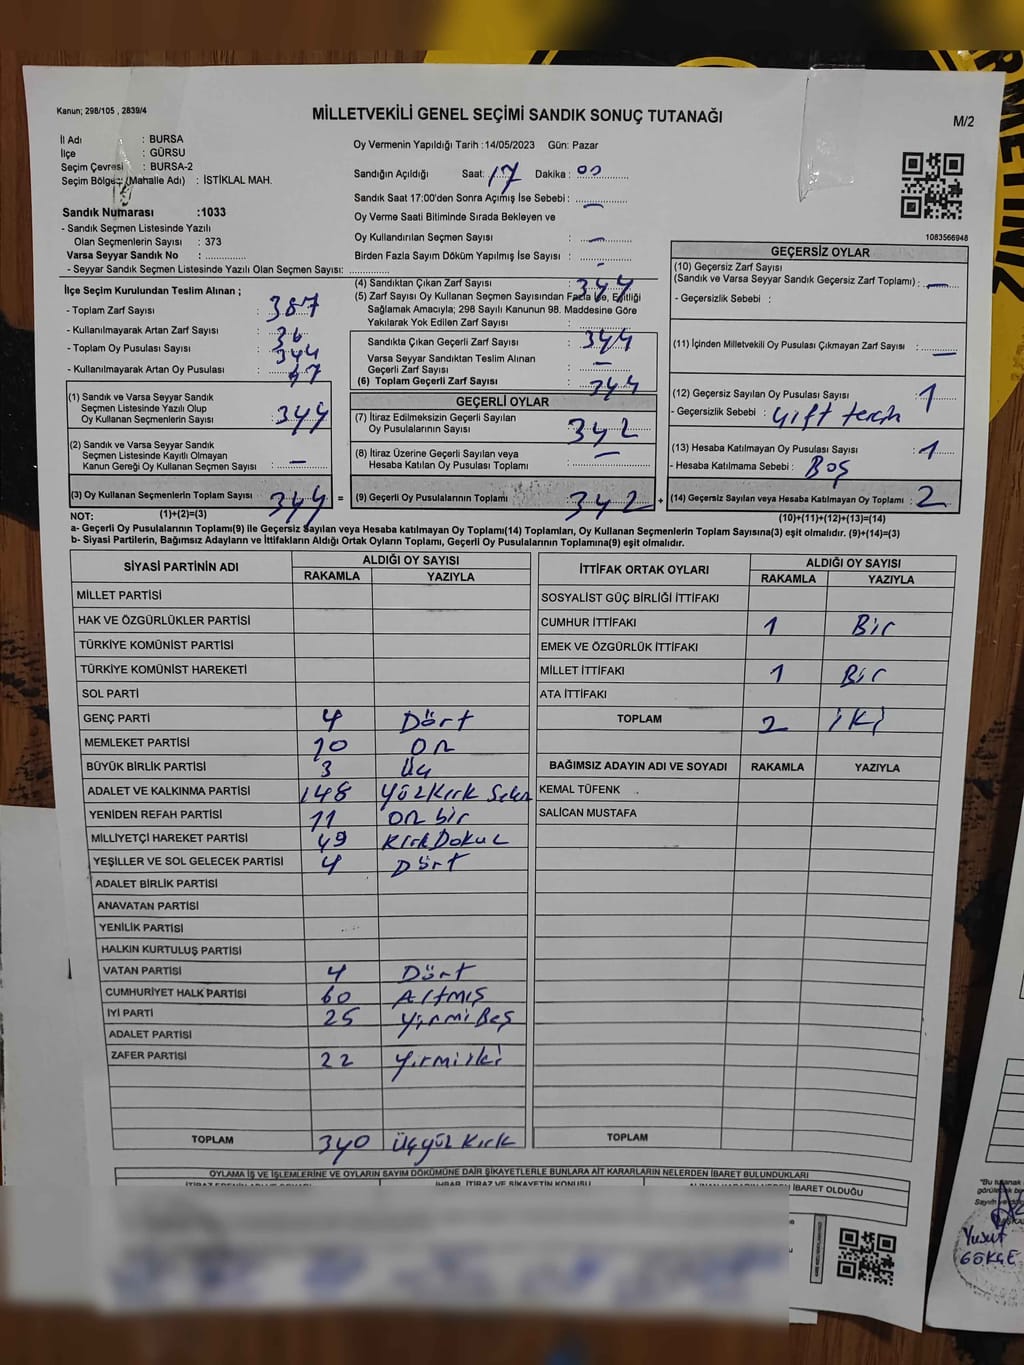 Kanun; 298/105 , 2839/4
MİLLETVEKİLİ GENEL SEÇİMİ SANDIK SONUÇ TUTANAĞI
M/2
İl Adı : BURSA
İlçe : GÜRSU
Seçim Çevresi : BURSA-2
Seçim Bölgesi (Mahalle Adı) : İSTİKLAL MAH.
Sandık Numarası :1033
- Sandık Seçmen Listesinde Yazılı
Olan Seçmenlerin Sayısı : 373
Varsa Seyyar Sandık No : ..............
- Seyyar Sandık Seçmen Listesinde Yazılı Olan Seçmen Sayısı: ..............
Oy Vermenin Yapıldığı Tarih :14/05/2023 Gün: Pazar
Sandığın Açıldığı Saat: 17 Dakika : 00
Sandık Saat 17:00'den Sonra Açımış İse Sebebi : —
Oy Verme Saati Bitiminde Sırada Bekleyen ve
Oy Kullandırılan Seçmen Sayısı : —
Birden Fazla Sayım Döküm Yapılmış İse Sayısı : -
1083566948
İlçe Seçim Kurulundan Teslim Alınan ;
- Toplam Zarf Sayısı : 387
- Kullanılmayarak Artan Zarf Sayısı :
- Toplam Oy Pusulası Sayısı :
- Kullanılmayarak Artan Oy Pusulası :
(1) Sandık ve Varsa Seyyar Sandık
Seçmen Listesinde Yazılı Olup
Oy Kullanan Seçmenlerin Sayısı : 344
(2) Sandık ve Varsa Seyyar Sandık
Seçmen Listesinde Kayıtlı Olmayan
Kanun Gereği Oy Kullanan Seçmen Sayısı : —
(3) Oy Kullanan Seçmenlerin Toplam Sayısı : 344 =
(1)+(2)=(3)
(4) Sandıktan Çıkan Zarf Sayısı : 344
(5) Zarf Sayısı Oy Kullanan Seçmen Sayısından Fazla İse, Eşitliği
Sağlamak Amacıyla; 298 Sayılı Kanunun 98. Maddesine Göre
Yakılarak Yok Edilen Zarf Sayısı :
Sandıkta Çıkan Geçerli Zarf Sayısı : 344
Varsa Seyyar Sandıktan Teslim Alınan
Geçerli Zarf Sayısı : —
(6) Toplam Geçerli Zarf Sayısı : 344
GEÇERLİ OYLAR
(7) İtiraz Edilmeksizin Geçerli Sayılan
Oy Pusulalarının Sayısı : 342
(8) İtiraz Üzerine Geçerli Sayılan veya
Hesaba Katılan Oy Pusulası Toplamı : —
(9) Geçerli Oy Pusulalarının Toplamı : 342 +
GEÇERSİZ OYLAR
(10) Geçersiz Zarf Sayısı
(Sandık ve Varsa Seyyar Sandık Geçersiz Zarf Toplamı) : —
- Geçersizlik Sebebi :
(11) İçinden Milletvekili Oy Pusulası Çıkmayan Zarf Sayısı : —
(12) Geçersiz Sayılan Oy Pusulası Sayısı : 1
- Geçersizlik Sebebi : Çift tercih
(13) Hesaba Katılmayan Oy Pusulası Sayısı : 1
- Hesaba Katılmama Sebebi : Boş
(14) Geçersiz Sayılan veya Hesaba Katılmayan Oy Toplamı : 2
(10)+(11)+(12)+(13)=(14)
NOT:
a- Geçerli Oy Pusulalarının Toplamı(9) ile Geçersiz Sayılan veya Hesaba katılmayan Oy Toplamı(14) Toplamları, Oy Kullanan Seçmenlerin Toplam Sayısına(3) eşit olmalıdır. (9)+(14)=(3)
b- Siyasi Partilerin, Bağımsız Adayların ve İttifakların Aldığı Ortak Oyların Toplamı, Geçerli Oy Pusulalarının Toplamına(9) eşit olmalıdır.
SİYASİ PARTİNİN ADI ALDIĞI OY SAYISI
RAKAMLA YAZIYLA
MİLLET PARTİSİ
HAK VE ÖZGÜRLÜKLER PARTİSİ
TÜRKİYE KOMÜNİST PARTİSİ
TÜRKİYE KOMÜNİST HAREKETİ
SOL PARTİ
GENÇ PARTİ 4 Dört
MEMLEKET PARTİSİ 10 On
BÜYÜK BİRLİK PARTİSİ 3 Üç
ADALET VE KALKINMA PARTİSİ 148 Yüzkırk Sekiz
YENİDEN REFAH PARTİSİ 11 On bir
MİLLİYETÇİ HAREKET PARTİSİ 49 Kırk Dokuz
YEŞİLLER VE SOL GELECEK PARTİSİ 4 Dört
ADALET BİRLİK PARTİSİ
ANAVATAN PARTİSİ
YENİLİK PARTİSİ
HALKIN KURTULUŞ PARTİSİ
VATAN PARTİSİ 4 Dört
CUMHURİYET HALK PARTİSİ 60 Altmış
İYİ PARTİ 25 Yirmi Beş
ADALET PARTİSİ
ZAFER PARTİSİ 22 Yirmi iki
TOPLAM 340 Üçyüz Kırk
İTTİFAK ORTAK OYLARI ALDIĞI OY SAYISI
RAKAMLA YAZIYLA
SOSYALİST GÜÇ BİRLİĞİ İTTİFAKI
CUMHUR İTTİFAKI 1 Bir
EMEK VE ÖZGÜRLÜK İTTİFAKI
MİLLET İTTİFAKI 1 Bir
ATA İTTİFAKI
TOPLAM 2 İki
BAĞIMSIZ ADAYIN ADI VE SOYADI RAKAMLA YAZIYLA
KEMAL TÜFENK
SALİCAN MUSTAFA
TOPLAM
OYLAMA İŞ VE İŞLEMLERİNE VE OYLARIN SAYIM DÖKÜMÜNE DAİR ŞİKAYETLERLE BUNLARA AİT KARARLARIN NELERDEN İBARET BULUNDUKLARI
İHBAR, İTİRAZ VE ŞİKAYETİN KONUSU
İBARET OLDUĞU
"Bu tutanak
Yusuf
GÖKÇE